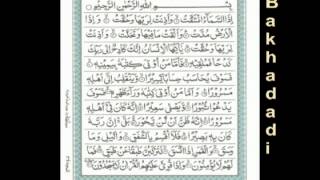 بِسْمِ اللَّهِ الرَّحْمَٰنِ الرَّحِيمِ
إِذَا السَّمَاءُ انْشَقَّتْ وَأَذِنَتْ لِرَبِّهَا وَحُقَّتْ وَإِذَا
الْأَرْضُ مُدَّتْ وَأَلْقَتْ مَا فِيهَا وَتَخَلَّتْ وَأَذِنَتْ
لِرَبِّهَا وَحُقَّتْ يَا أَيُّهَا الْإِنْسَانُ إِنَّكَ كَادِحٌ إِلَى رَبِّكَ
كَدْحًا فَمُلَاقِيهِ فَأَمَّا مَنْ أُوتِيَ كِتَابَهُ بِيَمِينِهِ
فَسَوْفَ يُحَاسَبُ حِسَابًا يَسِيرًا وَيَنْقَلِبُ إِلَى أَهْلِهِ
مَسْرُورًا وَأَمَّا مَنْ أُوتِيَ كِتَابَهُ وَرَاءَ ظَهْرِهِ فَسَوْفَ
يَدْعُو ثُبُورًا وَيَصْلَى سَعِيرًا إِنَّهُ كَانَ فِي أَهْلِهِ
مَسْرُورًا إِنَّهُ ظَنَّ أَنْ لَنْ يَحُورَ بَلَى إِنَّ رَبَّهُ
كَانَ بِهِ بَصِيرًا فَلَا أُقْسِمُ بِالشَّفَقِ وَاللَّيْلِ وَمَا
وَسَقَ وَالْقَمَرِ إِذَا اتَّسَقَ لَتَرْكَبُنَّ طَبَقًا عَنْ طَبَقٍ فَمَا
لَهُمْ لَا يُؤْمِنُونَ وَإِذَا قُرِئَ عَلَيْهِمُ الْقُرْآنُ لَا يَسْجُدُونَ
Bakhadadi